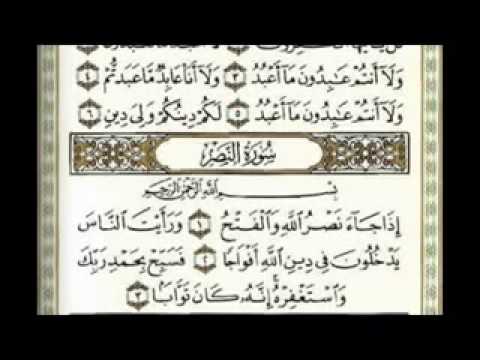 وَلَآ أَنتُمْ عَـٰبِدُونَ مَآ أَعْبُدُ ٣ وَلَآ أَنَا۠ عَابِدٌ مَّا عَبَدتُّمْ ٤
وَلَآ أَنتُمْ عَـٰبِدُونَ مَآ أَعْبُدُ ٥ لَكُمْ دِينُكُمْ وَلِىَ دِينِ ٦
سُورَةُ النَّصْرِ
بِسْمِ اللَّهِ الرَّحْمَـٰنِ الرَّحِيمِ
إِذَا جَآءَ نَصْرُ اللَّهِ وَالْفَتْحُ ١ وَرَأَيْتَ النَّاسَ
يَدْخُلُونَ فِى دِينِ اللَّهِ أَفْوَاجًا ٢ فَسَبِّحْ بِحَمْدِ رَبِّكَ
وَاسْتَغْفِرْهُ إِنَّهُۥ كَانَ تَوَّابًۢا ٣